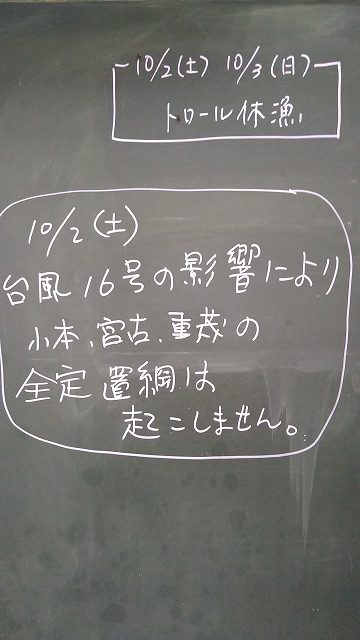 10/2(土) 10/3(日)
トロール休漁
10/2(土)
台風16号の影響により
小本、宮古、重茂の
全定置網は
起こしません。